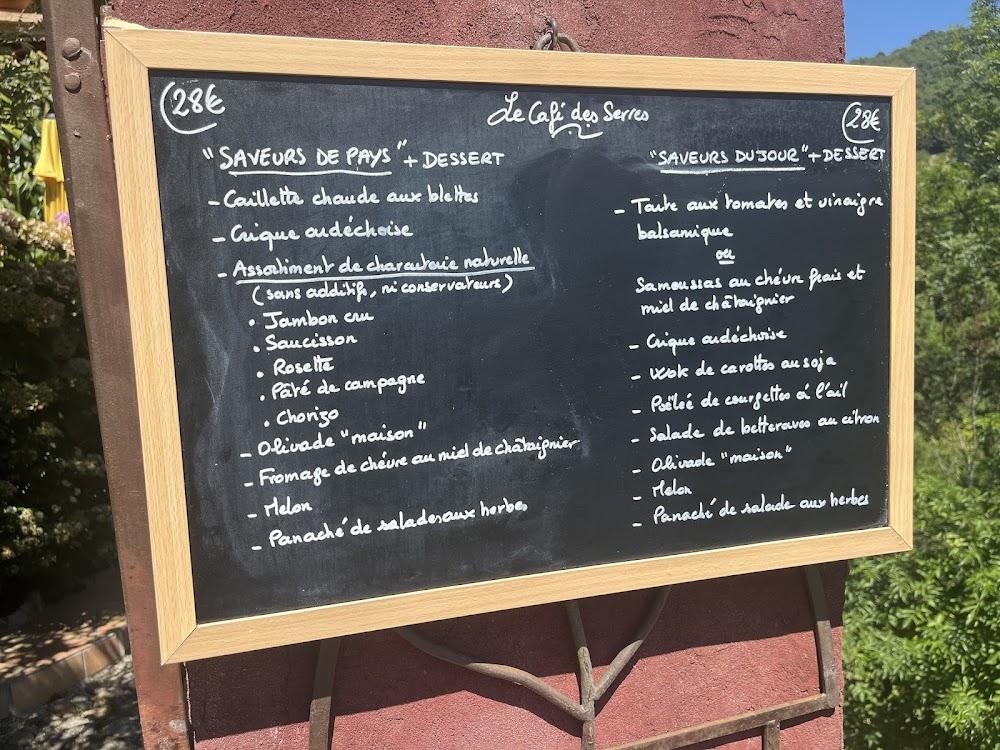 Le Café des Serres
28€
"SAVEURS DE PAYS" + DESSERT
- Caillette chaude aux blettes
- Crique ardéchoise
- Assortiment de charcuterie naturelle
(sans additifs, ni conservateurs)
• Jambon cru
• Saucisson
• Rosette
• Pâté de campagne
• Chorizo
- Olivade "maison"
- Fromage de chévre au miel de châtaignier
- Melon
- Panaché de salades aux herbes
28€
"SAVEURS DU JOUR" + DESSERT
- Tarte aux tomates et vinaigre
balsamique
ou
Samoussas au chévre frais et
miel de châtaignier
- Crique ardéchoise
- Wok de carottes au soja
- Poêlée de courgettes à l'ail
- Salade de betteraves au citron
- Olivade "maison"
- Melon
- Panaché de salade aux herbes